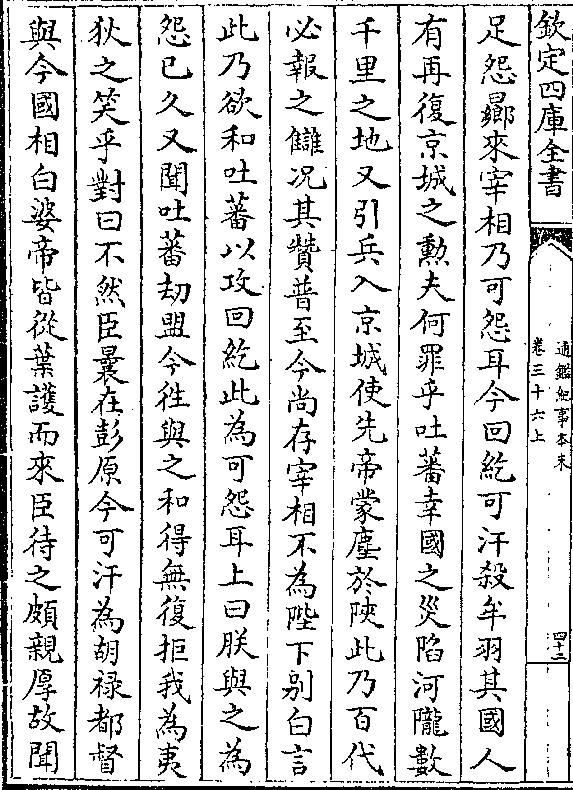 欽定四庫全書
通鑑紀事本末
卷三十六上
四十二
足怨曏來宰相乃可怨耳今回紇可汗殺牟羽其國人
有再復京城之勲夫何罪乎吐蕃幸國之災陷河隴數
千里之地又引兵入京城使先帝蒙塵於陜此乃百代
必報之讎况其贊普至今尚存宰相不為陛下别白言
此乃欲和吐蕃以攻回紇此為可怨耳上曰朕與之為
怨已久又聞吐蕃刼盟今往與之和得無復拒我為夷
狄之笑乎對曰不然臣曩在彭原今可汗為胡禄都督
與今國相白婆帝皆從葉護而來臣待之頗親厚故聞